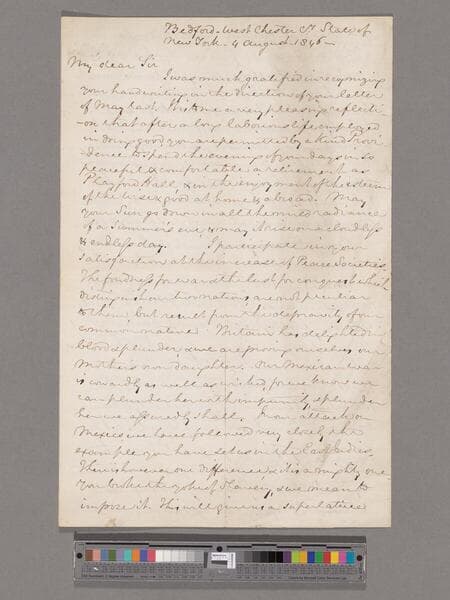 Bedford - West Chester Cy. State of
New York - 4 August 1846 -
My dear Sir
I was much gratified in recognizing
your handwriting in the direction of your letter
of May last. It is to me a very pleasing reflecti-
-on that after a long laborious life, employed
in doing good, you are permitted by a kind Provi
dence to spend the evening of your days in so
peaceful & comfortable a retirement as
Playford Hall, & in the enjoyment of the esteem
of the wise & good at home & abroad. May
your Sun go down in all the mild radiance
of a Summer's eve & may it rise on a cloudless
& endless day. I participate in your
satisfaction at the increase of Peace Societies
The fondness for war & the lust for conquest which
distinguish our two nations, are not peculiar
to them, but result from the depravity of our
common nature. Britain has delighted in
blood & plunder, & we are proving ourselves our
Mother's own daughters. Our Mexican war
is cowardly as well as wicked, for we know we
can plunder her with impunity, & plunder
her we assuredly shall. In our attack on
Mexico we have followed very closely the
example you have set us in the East Indies.
There is however one difference & it is a mighty one
You broke the yoke of Slavery, & we mean to
impose it. This will give us a superlative